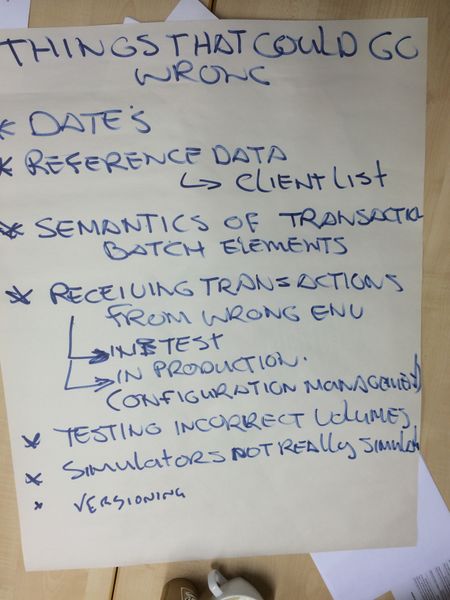 THINGS THAT COULD GO
WRONG
* DATE'S
* REFERENCE DATA
↳ CLIENT LIST
* SEMANTICS OF TRANSACTIO
BATCH ELEMENTS
* RECEIVING TRANSACTIONS
FROM WRONG ENV
→ IN TEST
→ IN PRODUCTION.
CONFIGURATION MANAGEMENT)
* TESTING INCORRECT VOLUMES
* SIMULATORS NOT REALLY SIMULAT
* VERSIONING